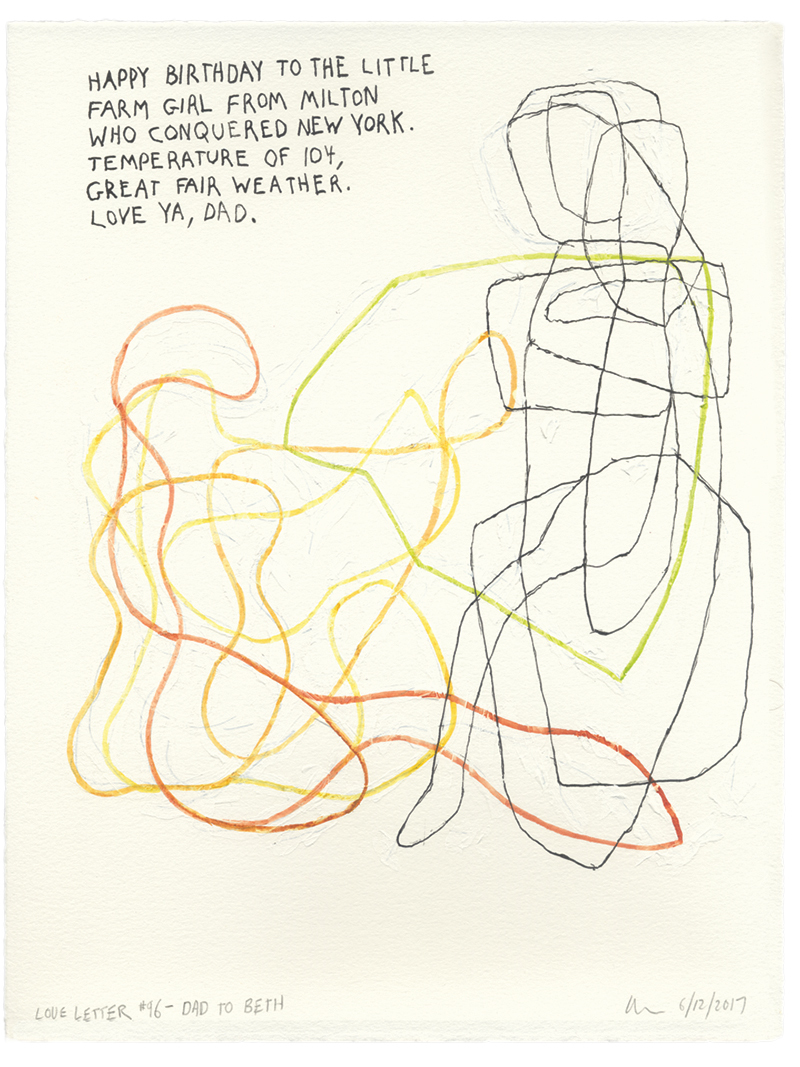 HAPPY BIRTHDAY TO THE LITTLE
FARM GIRL FROM MILTON
WHO CONQUERED NEW YORK.
TEMPERATURE OF 104,
GREAT FAIR WEATHER.
LOVE YA, DAD.
LOVE LETTER #96 – DAD TO BETH
6/12/2017